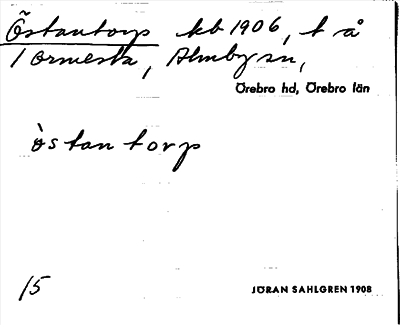 Östantorp kb 1906, t å
1 Ormesta, Almby sn,
Örebro hd, Örebro län
òstantorp
15
JÖRAN SAHLGREN 1908